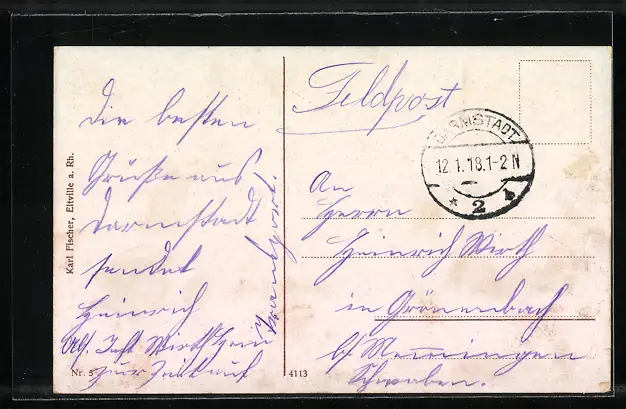 Die besten
Grüße aus
Darmstadt
sendet
Heinrich
Wirth
zur Zeit auf
Feldpost
DARMSTADT
12.1.18.1-2 N
* 2
An
Herrn
Heinrich Wirth
in Grönenbach
b/ Memmingen
Schwaben.
Karl Fischer, Eltville a. Rh.
Nr. 5
4113